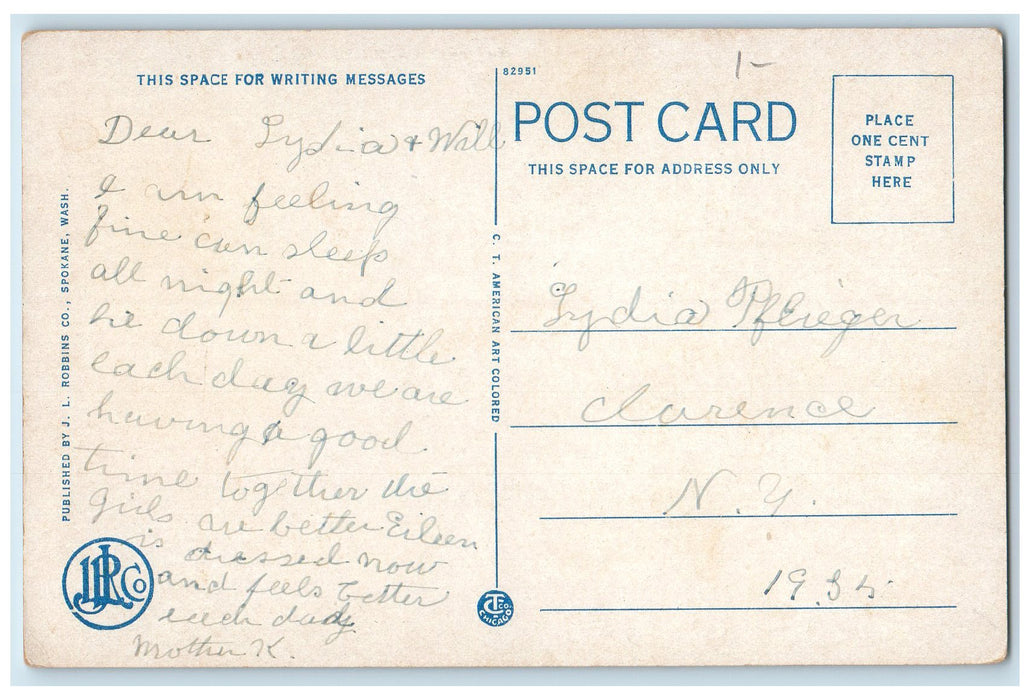 THIS SPACE FOR WRITING MESSAGES
Dear Lydia & Will
I am feeling
fine can sleep
all night and
lie down a little
each day we are
having a good
time together the
girls are better Eileen
is dressed now
and feels better
each day
Mother K.
PUBLISHED BY J. L. ROBBINS CO., SPOKANE, WASH.
JLR Co
82951
C. T. AMERICAN ART COLORED
CT CO. CHICAGO
1-
POST CARD
THIS SPACE FOR ADDRESS ONLY
PLACE
ONE CENT
STAMP
HERE
Lydia Pflieger
Clarence
N. Y.